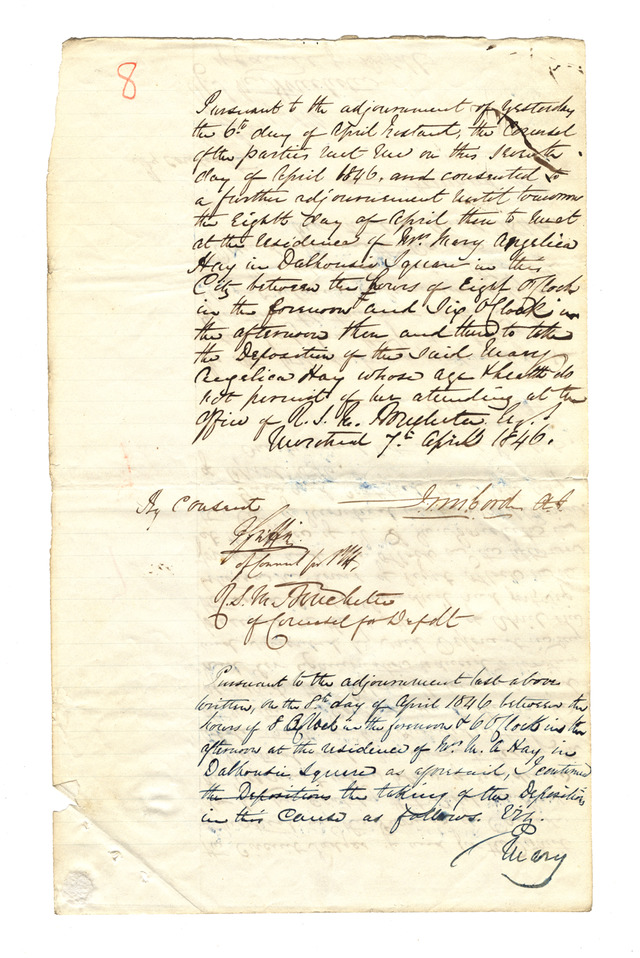 8
Pursuant to the adjournment of yesterday
the 6th day of April Instant, the Counsel
of the parties met me on this seventh
day of April 1846, and consented to
a further adjournment until tomorrow
the Eighth day of April then to meet
at the residence of Mrs Mary Angelica
Hay in Dalhousie Square in this
City between the hours of Eight O'Clock
in the forenoon and Six O'Clock in
the afternoon then and there to take
the Deposition of the said Mary
Angelica Hay whose age & health do
not permit of her attending at the
Office of R. S. M. Bouchette Esq.
Montreal 7th April 1846.
By Consent
of Counsel for Pltf,
R. S. M. Bouchette
of Counsel for Defdt
Pursuant to the adjournment last above
written, on the 8th day of April 1846 between the
hours of 8 O'Clock in the forenoon & 6 O'Clock in the
afternoon at the residence of Mrs M. A Hay in
Dalhousie Square as aforesaid, I continued
the Depositions the taking of the Depositions
in this Cause as follows. Viz.
Mary